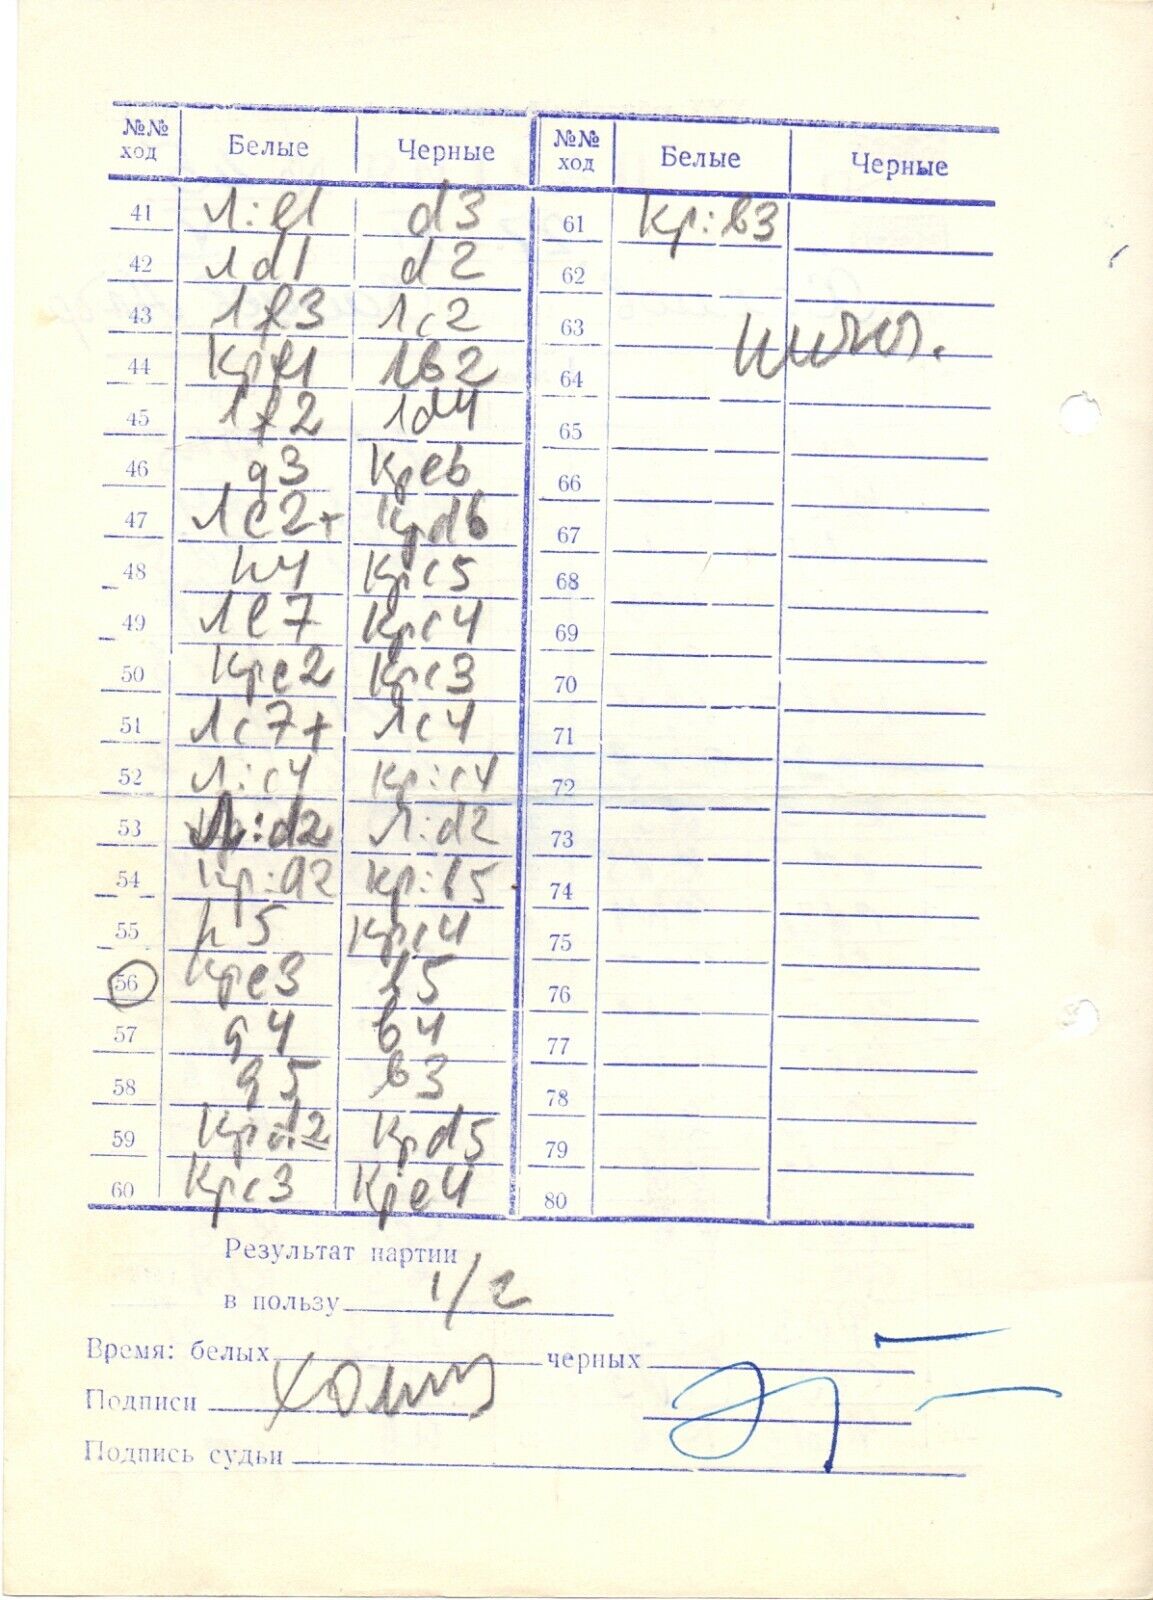 №№ ход Белые Черные №№ ход Белые Черные
41 Л:e1 d3 61 Кр:b3
42 Лd1 d2 62
43 Лf3 Лc2 63 ничья.
44 Крe1 Лb2 64
45 Лf2 Лd4 65
46 g3 Крe6 66
47 Лe2+ Крd6 67
48 h4 Крc5 68
49 Лe7 Крc4 69
50 Крe2 Крc3 70
51 Лc7+ Лc4 71
52 Л:c4 Кр:c4 72
53 Л:d2 Л:d2 73
54 Кр:d2 Кр:b5 74
55 h5 Крc4 75
56 Крe3 b5 76
57 g4 b4 77
58 g5 b3 78
59 Крd2 Крd5 79
60 Крc3 Крe4 80
Результат партии
в пользу 1/2
Время: белых черных
Подписи
Подпись судьи